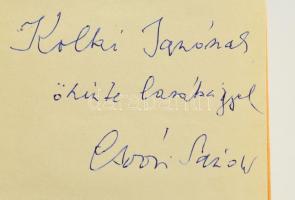 Kolki Janónak
őszinte barátsággal
Csoóri Sándor